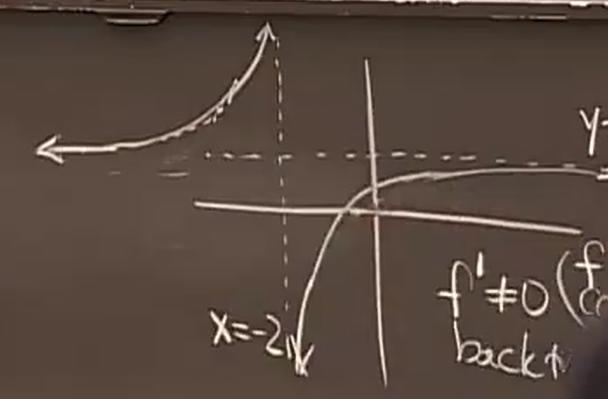 y
x=-2
f'≠0 (f
back